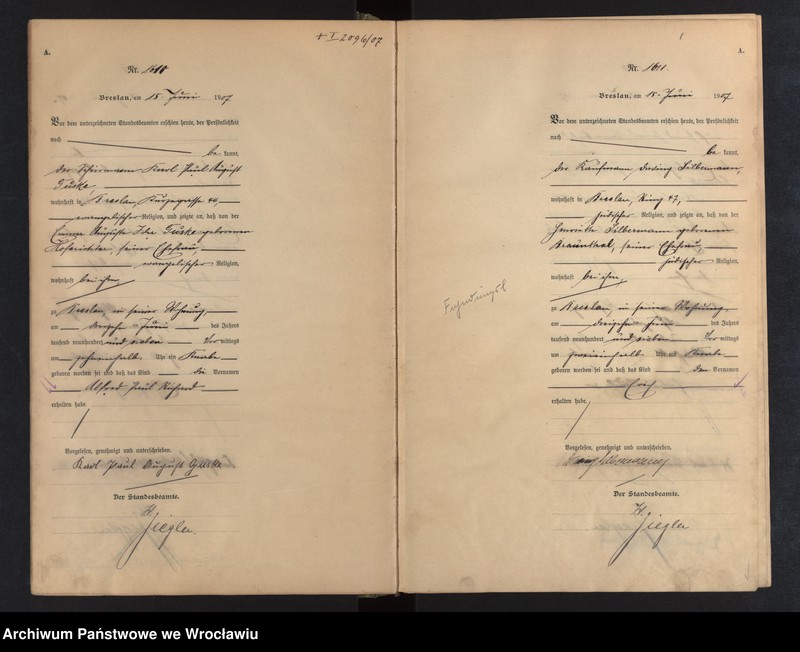 + I 2096/07
A.
Nr. 1610
Breslau, am 15. Juni 1907
Vor dem unterzeichneten Standesbeamten erschien heute, der Persönlichkeit
nach
be kannt,
der Karl Paul August
wohnhaft in Breslau,
evangelischer Religion, und zeigte an, daß von der
Emma Auguste Ida geborenen
seiner Ehefrau,
evangelischer Religion,
wohnhaft bei ihm,
zu Breslau, in seiner Wohnung,
am Juni des Jahres
tausend neunhundert und sieben Vor mittags
um Uhr ein Knabe
geboren worden sei und daß das Kind die Vornamen
Alfred Paul Richard
erhalten habe.
Vorgelesen, genehmigt und unterschrieben.
Karl Paul August
Der Standesbeamte.
Ziegler.
A.
Nr. 1611.
Breslau, am 15. Juni 1907
Vor dem unterzeichneten Standesbeamten erschien heute, der Persönlichkeit
nach
be kannt,
der Kaufmann, Silbermann,
wohnhaft in Breslau, Ring 47,
jüdischer Religion, und zeigte an, daß von der
Henriette Silbermann geborenen
seiner Ehefrau,
jüdischer Religion,
wohnhaft bei ihm,
zu Breslau, in seiner Wohnung,
am Juni des Jahres
tausend neunhundert und sieben Vor mittags
um Uhr ein Knabe
geboren worden sei und daß das Kind den Vornamen
Erich
erhalten habe.
Vorgelesen, genehmigt und unterschrieben.
Silbermann
Der Standesbeamte.
Ziegler
Archiwum Państwowe we Wrocławiu